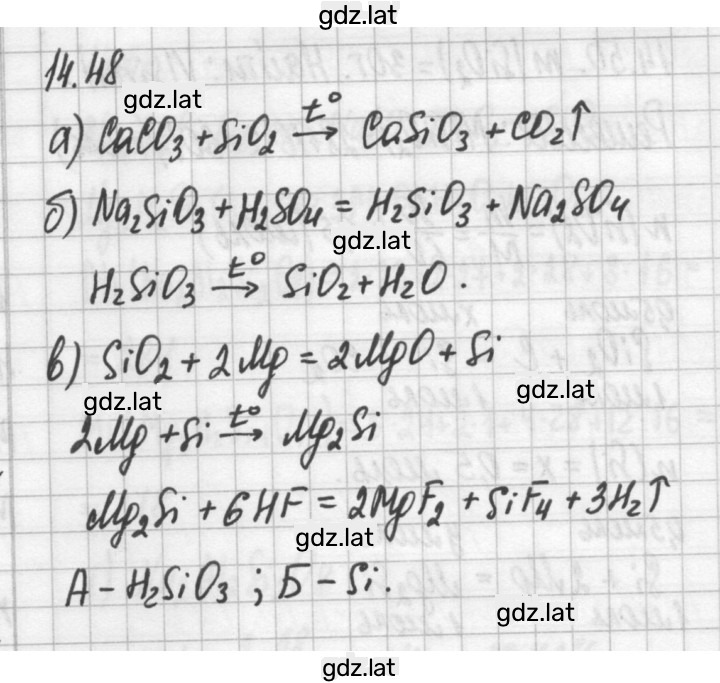 gdz.lat
14.48
gdz.lat
а) CaCO₃ + SiO₂ →t° CaSiO₃ + CO₂↑
б) Na₂SiO₃ + H₂SO₄ = H₂SiO₃ + Na₂SO₄
gdz.lat
H₂SiO₃ →t° SiO₂ + H₂O.
в) SiO₂ + 2Mg = 2MgO + Si
gdz.lat
gdz.lat
2Mg + Si →t° Mg₂Si
Mg₂Si + 6HF = 2MgF₂ + SiF₄ + 3H₂↑
gdz.lat
А – H₂SiO₃ ; Б – Si.
gdz.lat
gdz.lat